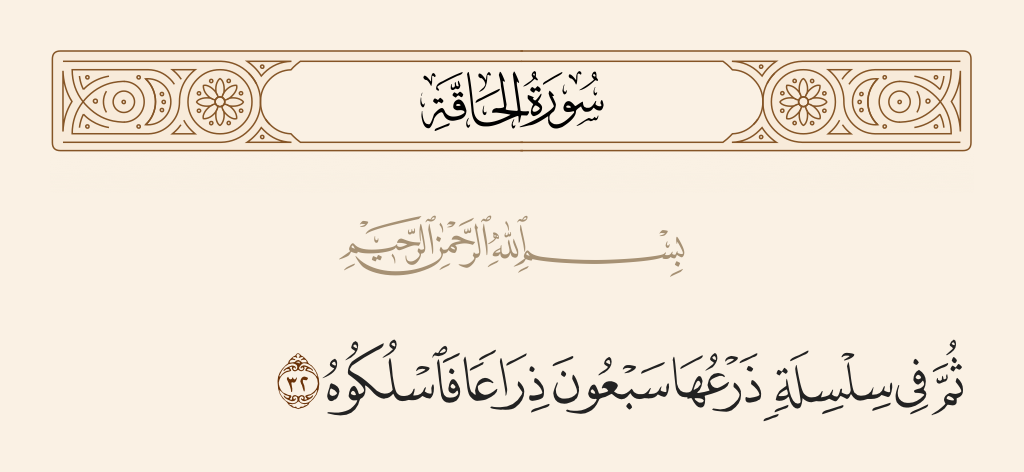 سُورَةُ الحَاقَّةِ
بِسْمِ ٱللَّهِ ٱلرَّحْمَٰنِ ٱلرَّحِيمِ
ثُمَّ فِى سِلْسِلَةٍ ذَرْعُهَا سَبْعُونَ ذِرَاعًا فَٱسْلُكُوهُ ٣٢